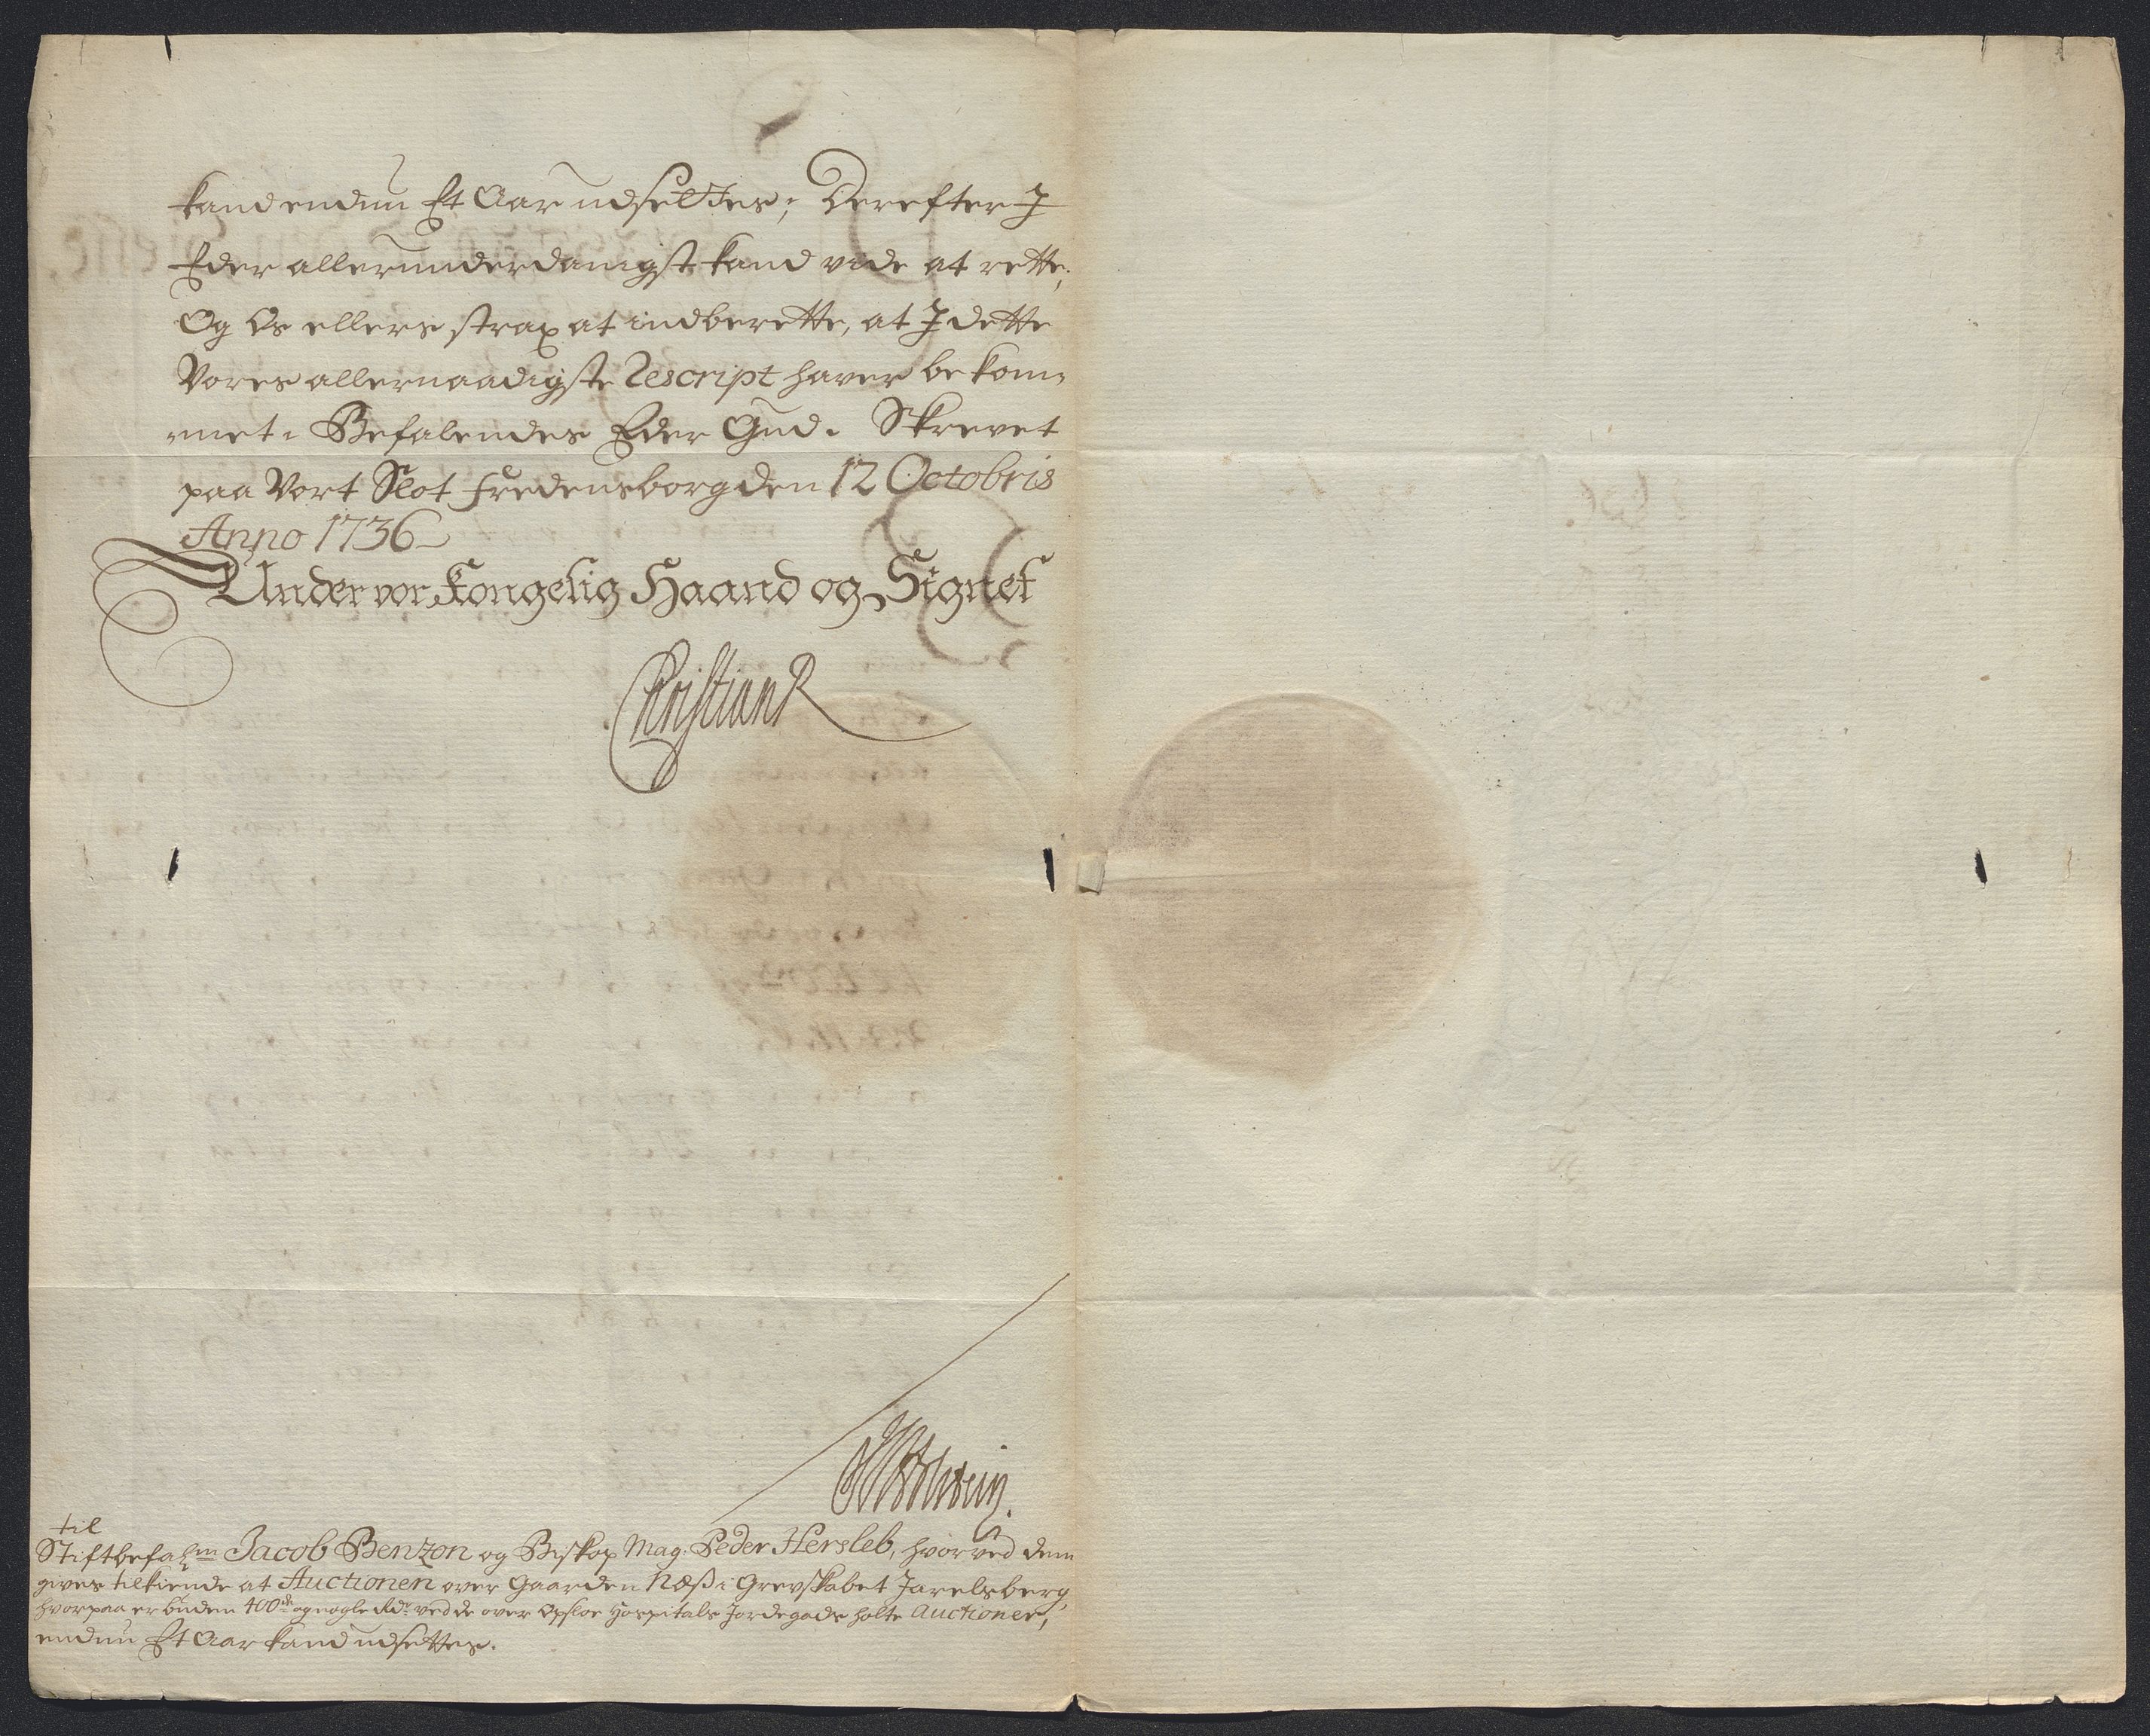 kand endnu Et Aar udsettes; Derefter I
Eder allerunderdanigst kand vide at rette,
Og Os ellers strax at indberette, at I dette
Vores allernaadigste Rescript haver bekom-
met. Befalendes Eder Gud. Skrevet
paa Vort Slot Fredensborg den 12 Octobris
Anno 1736
Under vor Kongelig Haand og Signet
Christian R
til
Stiftbefahm Jacob Benzon og Biskop Mag. Peder Hersleb, hvorved dem
gives tilkiende at Auctionen over Gaarden Næss i Grevskabet Jarelsberg,
hvorpaa er buden 400 dr og nogle Rdr ved de over Opsloe Hospitals Jordegods holte Auctioner,
endnu Et Aar kand udsettes.